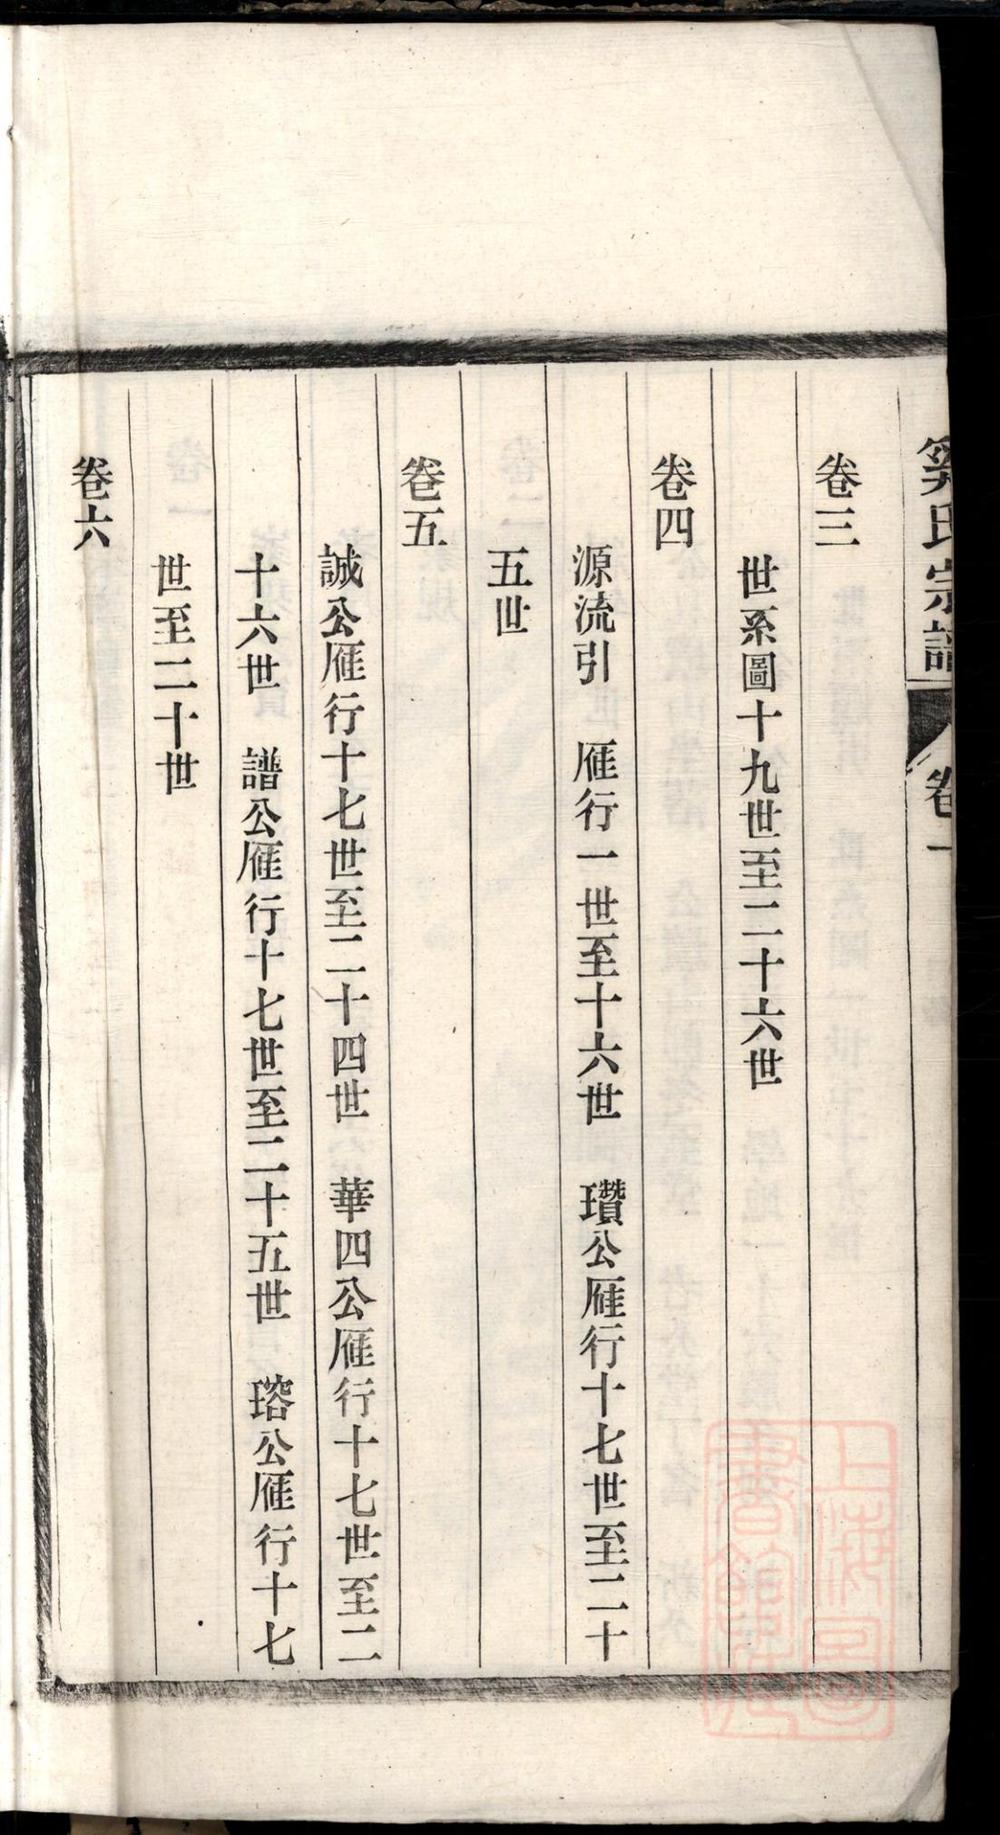 氏宗譜 卷一
卷三
世系圖十九世至二十六世
卷四
源流引 雁行一世至十六世 瓚公雁行十七世至二十
五世
卷五
誠公雁行十七世至二十四世 華四公雁行十七世至二
十六世 譜公雁行十七世至二十五世 瑢公雁行十七
世至二十世
卷六
上海圖書館藏